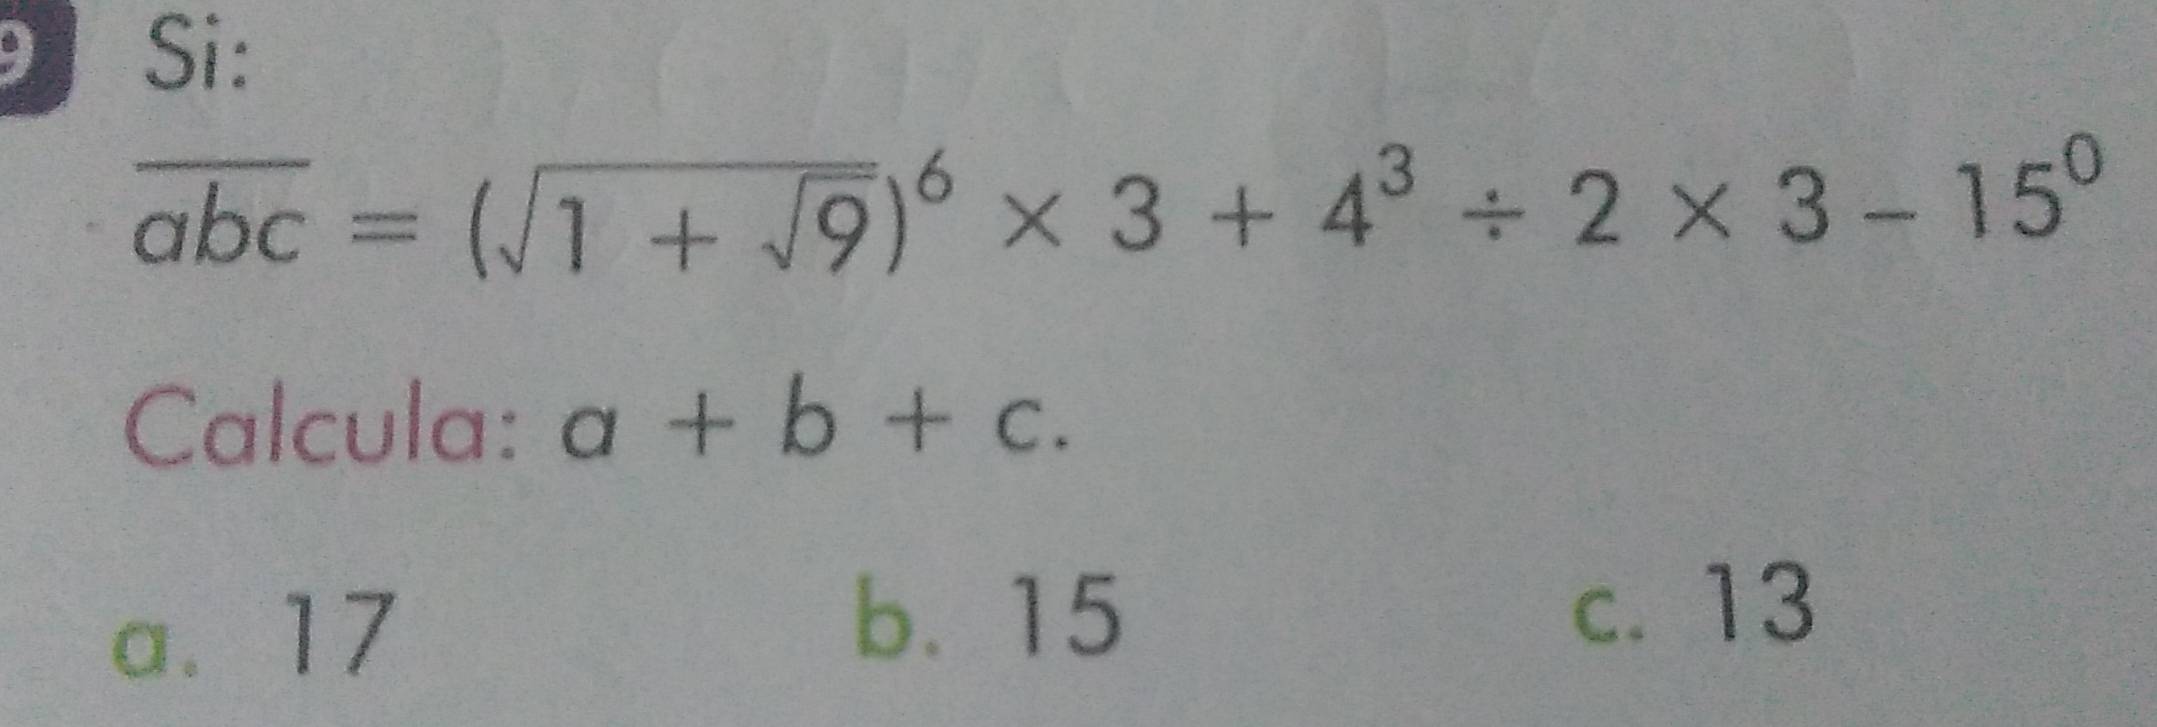 9 Si:
\overline{abc} = (\sqrt{1 + \sqrt{9}})^6 × 3 + 4^3 ÷ 2 × 3 – 15^0
Calcula: a + b + c.
a. 17 b. 15 c. 13